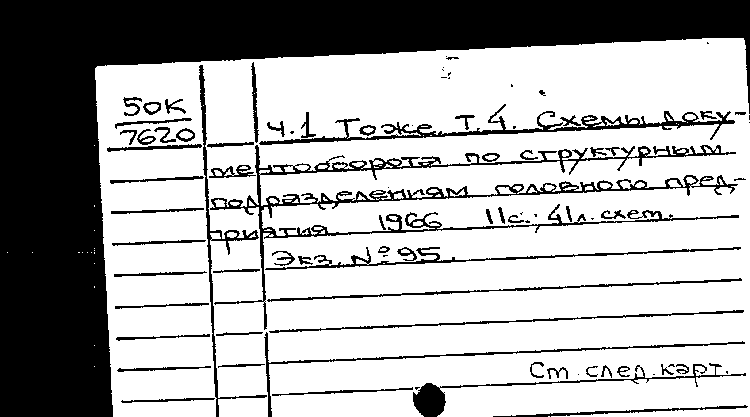 50К
7620
Ч.1 Тоже. Т.4. Схемы доку-
ментооборота по структурным
подразделениям головного пред-
приятия. 1966. 11с.; 41л. схем.
Экз. №95.
Ст след. карт.